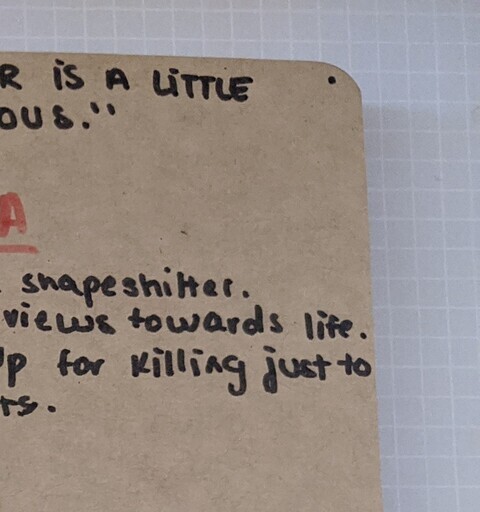 R IS A LITTLE
OUS."
A
snapeshifter.
views towards life.
Up for killing just to
rs.